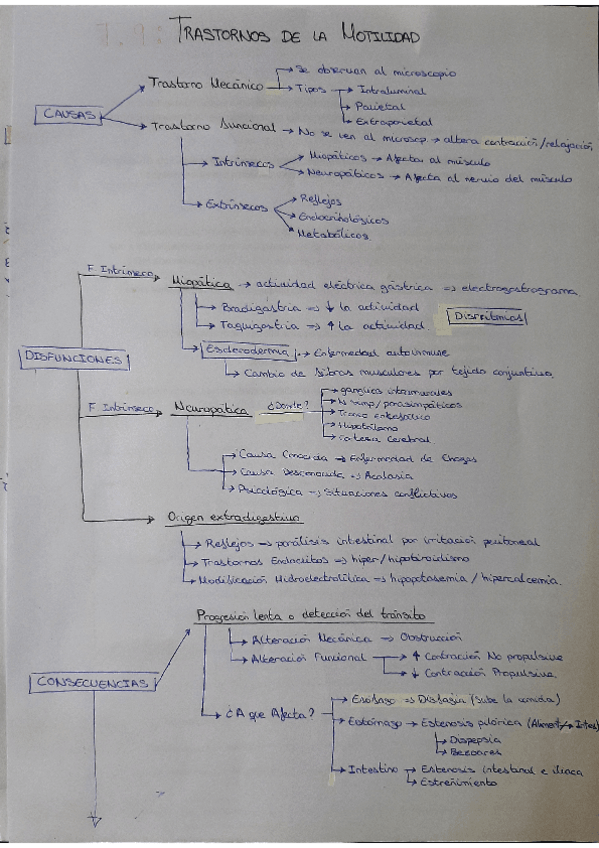 TRASTORNOS DE LA MOTILIDAD
CAUSAS
Trastorno Mecánico
Se observan al microscopio
Tipos → Intraluminal
Parietal
Extraparietal
Trastorno Funcional → No se ven al microscp. → altera contracción/relajación
Intrínsecos
Miopáticos → Afecta al músculo
Neuropáticos → Afecta al nervio del músculo
Extrínsecos
Reflejos
Endocrinológicos
Metabólicos
DISFUNCIONES
F. Intrínseco
Miopática → actividad eléctrica gástrica ⇒ electrogastrograma
Bradigastria → ↓ la actividad
Taquigastria → ↑ la actividad
Disrritmias
Esclerodermia → Enfermedad autoinmune
Cambio de fibras musculares por tejido conjuntivo.
F. Intrínseco
Neuropática ¿Donde?
ganglios intramurales
N simp/parasimpáticos
Tronco encefálico
Hipotálamo
Corteza cerebral
Causa Conocida → Enfermedad de Chagas
Causa Desconocida → Acalasia
Psicológica → Situaciones conflictivas
Origen extradigestivo
Reflejos → parálisis intestinal por irritación peritoneal
Trastornos Endocrinos → hiper/hipotiroidismo
Modificación Hidroelectrolítica → hipopotasemia / hipercalcemia.
CONSECUENCIAS
Progresión lenta o detección del tránsito
Alteración Mecánica → Obstrucción
Alteración Funcional
↑ Contracción No propulsiva
↓ Contracción Propulsiva.
¿A que Afecta?
Esófago ⇒ Disfagia (Sube la comida)
Estómago → Estenosis pilórica (Aliment → Intes)
Dispepsia
Bezoares
Intestino → Estenosis intestinal e iliaca
Estreñimiento